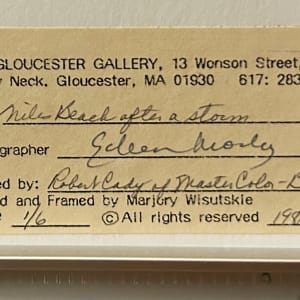 GLOUCESTER GALLERY, 13 Wonson Street,
Neck, Gloucester, MA 01930 617: 283
Niles Beach after a storm
ographer Eileen Mosly
ed by: Robert Cady of MasterColor-
d and Framed by Marjory Wisutskie
1/6 ©All rights reserved 198